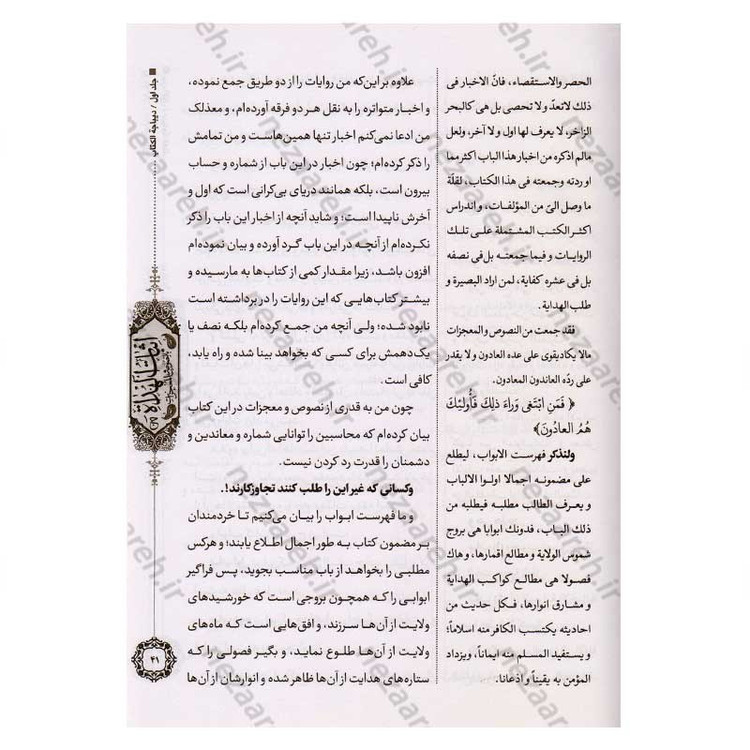 الحصر والاستقصاء، فانّ الاخبار فى
ذلك لاتعدّ ولا تحصى بل هى كالبحر
الزاخر، لا يعرف لها اول ولا آخر، ولعل
مالم اذكره من اخبار هذا الباب اكثر مما
او ردته وجمعته فى هذا الكتاب، لقلّة
ما وصل الىّ من المؤلفات، واندراس
اكثر الكتب المشتملة على تلك
الروايات و فيما جمعته بل فى نصفه
بل فى عشره كفاية، لمن اراد البصيرة و
طلب الهداية.
فقد جمعت من النصوص والمعجزات
مالا يكاد يقوى على عده العادون ولا يقدر
على ردّه العاندون المعادون.
﴿ فَمَنِ ابْتَغى وَراءَ ذلِكَ فَأُولئِكَ
هُمُ العادُونَ﴾
ولنذكر فهرست الابواب، ليطلع
على مضمونه اجمالا اولوا الالباب
و يعرف الطالب مطلبه فيطلبه من
ذلك الباب، فدونك ابوابا هى بروج
شموس الولاية و مطالع اقمارها، و هاك
فصولا هى مطالع كواكب الهداية
و مشارق انوارها، فكل حديث من
احاديثه يكتسب الكافر منه اسلاماً؛
و يستفيد المسلم منه ايماناً، ويزداد
المؤمن به يقيناً و اذعانا.
علاوه بر این‌که من روایات را از دو طریق جمع نموده،
و اخبار متواتره را به نقل هر دو فرقه آورده‌ام، و معذلک
من ادعا نمی‌کنم اخبار تنها همین‌هاست و من تمامش
را ذکر کرده‌ام؛ چون اخبار در این باب از شماره و حساب
بیرون است، بلکه همانند دریای بی‌کرانی است که اول و
آخرش ناپیدا است؛ و شاید آنچه از اخبار این باب را ذکر
نکرده‌ام از آنچه در این باب گرد آورده و بیان نموده‌ام
افزون باشد، زیرا مقدار کمی از کتاب‌ها به ما رسیده و
بیشتر کتاب‌هایی که این روایات را در برداشته است
نابود شده؛ ولی آنچه من جمع کرده‌ام بلکه نصف یا
یک‌دهمش برای کسی که بخواهد بینا شده و راه یابد،
کافی است.
چون من به قدری از نصوص و معجزات در این کتاب
بیان کرده‌ام که محاسبین را توانایی شماره و معاندین و
دشمنان را قدرت رد کردن نیست.
وکسانی که غیر این را طلب کنند تجاوزکارند!.
و ما فهرست ابواب را بیان می‌کنیم تا خردمندان
بر مضمون کتاب به طور اجمال اطلاع یابند؛ و هرکس
مطلبی را بخواهد از باب مناسب بجوید، پس فراگیر
ابوابی را که همچون بروجی است که خورشیدهای
ولایت از آن‌ها سرزند، و افق‌هایی است که ماه‌های
ولایت از آن‌ها طلوع نماید، و بگیر فصولی را که
ستاره‌های هدایت از آن‌ها ظاهر شده و انوارشان از آن‌ها
جلد اول / دیباجة الکتاب
إثبات الهداة
۴۱
nezaareh.ir